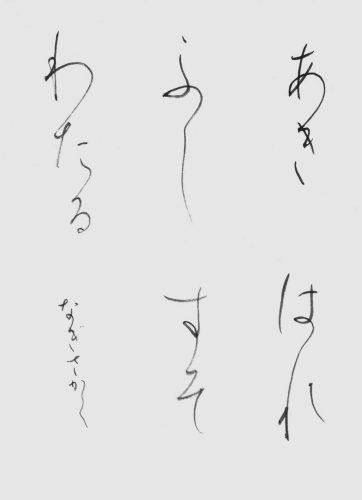 あき はれ
ふし すそ
わたる
なぎさかく